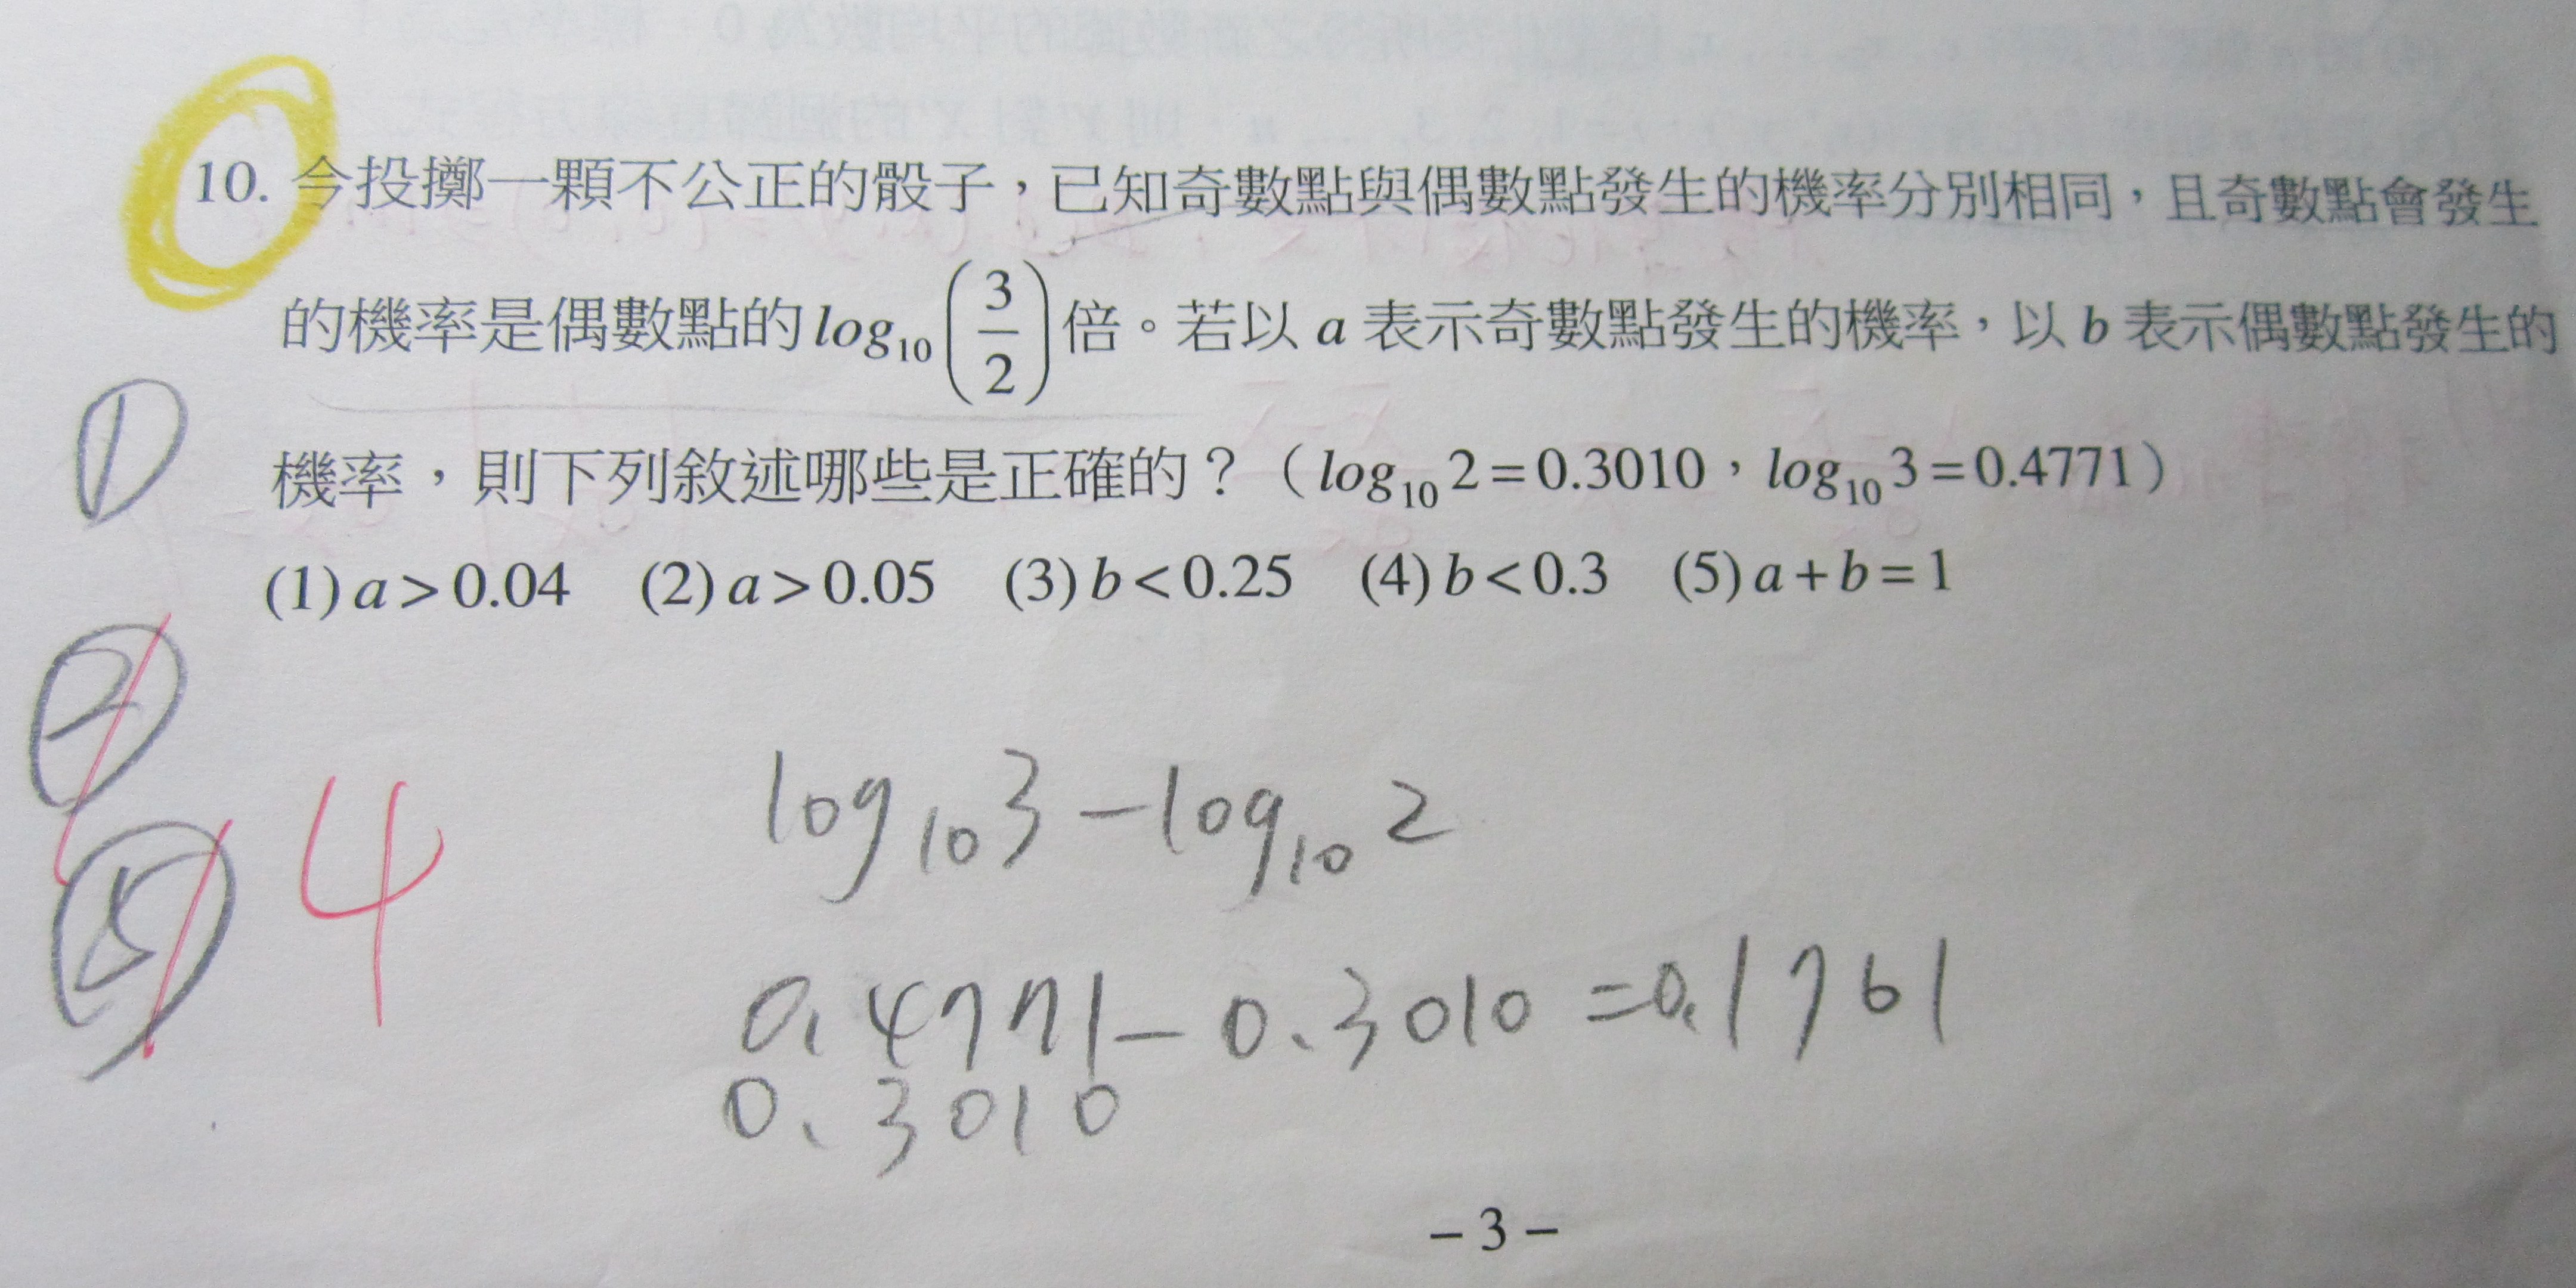 10. 今投擲一顆不公正的骰子，已知奇數點與偶數點發生的機率分別相同，且奇數點會發生
的機率是偶數點的 log₁₀(3/2) 倍。若以 a 表示奇數點發生的機率，以 b 表示偶數點發生的
①
機率，則下列敘述哪些是正確的？（log₁₀2=0.3010，log₁₀3=0.4771）
(1) a>0.04 (2) a>0.05 (3) b<0.25 (4) b<0.3 (5) a+b=1
②
4
log₁₀3-log₁₀2
⑤
0.4771-0.3010=0.1761
0.3010
-3-